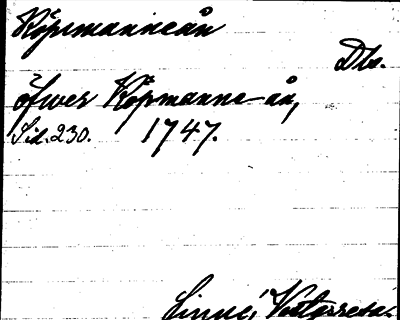 Köpmanneån
Dls.
öfwer Köpmanne-ån,
Sid. 230. 1747.
Linné, Västgötaresa.